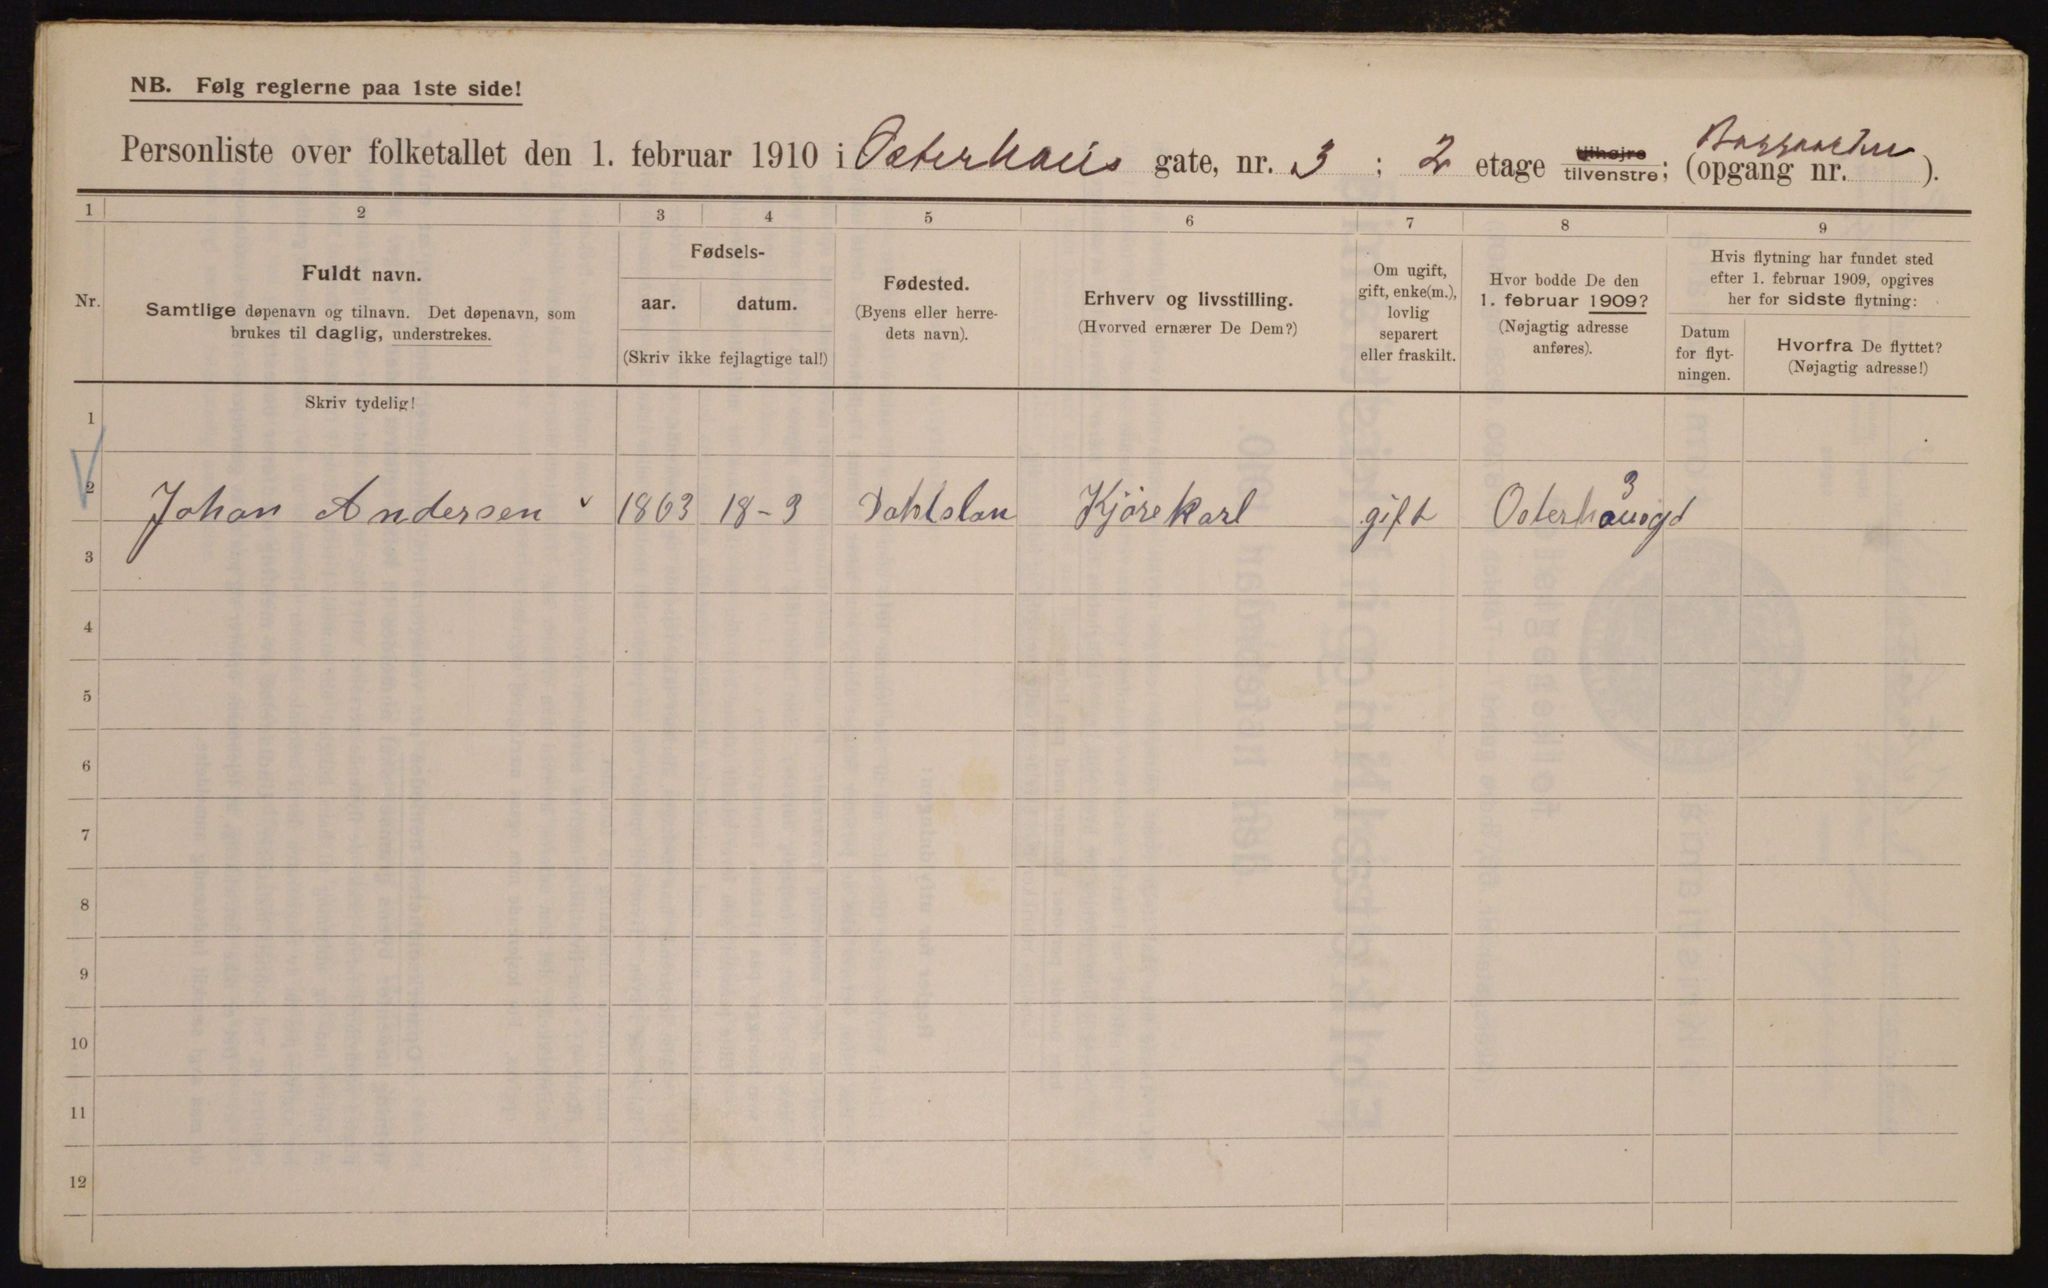 NB. Følg reglerne paa 1ste side!
Personliste over folketallet den 1. februar 1910 i Osterhaus gate, nr. 3 ; 2 etage tilhøjre tilvenstre; (opgang nr. ).
1 2 3 4 5 6 7 8 9
Nr.
Fuldt navn.
Samtlige døpenavn og tilnavn. Det døpenavn, som
brukes til daglig, understrekes.
Fødsels-
aar. datum.
(Skriv ikke fejlagtige tal!)
Fødested.
(Byens eller herre-
dets navn).
Erhverv og livsstilling.
(Hvorved ernærer De Dem?)
Om ugift,
gift, enke(m.),
lovlig
separert
eller fraskilt.
Hvor bodde De den
1. februar 1909?
(Nøjagtig adresse
anføres).
Hvis flytning har fundet sted
efter 1. februar 1909, opgives
her for sidste flytning:
Datum
for flyt-
ningen.
Hvorfra De flyttet?
(Nøjagtig adresse!)
Skriv tydelig!
1
2 Johan Andersen 1863 18-3 Dahlslan Kjørekarl gift Osterhausgd 3
3
4
5
6
7
8
9
10
11
12